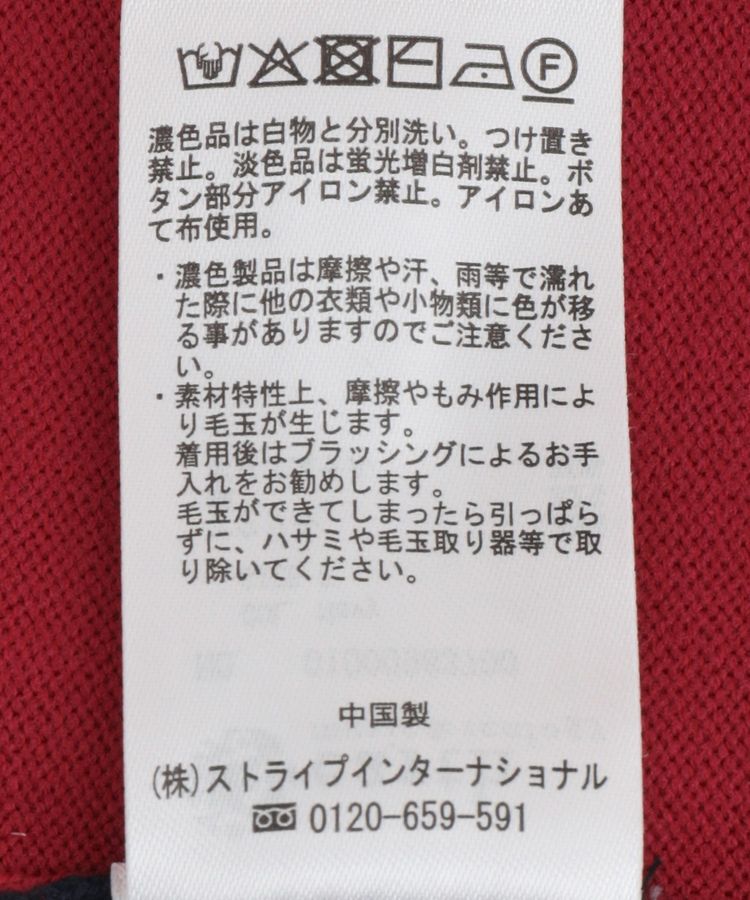 F
濃色品は白物と分別洗い。つけ置き
禁止。淡色品は蛍光増白剤禁止。ボ
タン部分アイロン禁止。アイロンあ
て布使用。
・濃色製品は摩擦や汗、雨等で濡れ
た際に他の衣類や小物類に色が移
る事がありますのでご注意くださ
い。
・素材特性上、摩擦やもみ作用によ
り毛玉が生じます。
着用後はブラッシングによるお手
入れをお勧めします。
毛玉ができてしまったら引っぱら
ずに、ハサミや毛玉取り器等で取
り除いてください。
中国製
(株)ストライプインターナショナル
0120-659-591